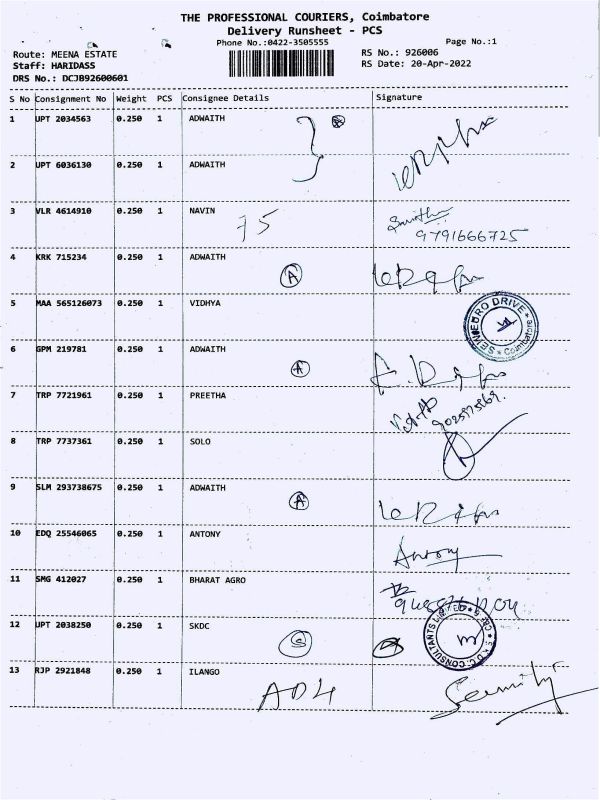 THE PROFESSIONAL COURIERS, Coimbatore
Delivery Runsheet - PCS
Phone No.:0422-3505555
Page No.:1
Route: MEENA ESTATE
RS No.: 926006
Staff: HARIDASS
RS Date: 20-Apr-2022
DRS No.: DCJB92600601
S No Consignment No Weight PCS Consignee Details Signature
1 UPT 2034563 0.250 1 ADWAITH
A
2 UPT 6036130 0.250 1 ADWAITH
3 VLR 4614910 0.250 1 NAVIN
75
9791666725
4 KRK 715234 0.250 1 ADWAITH
A
5 MAA 565126073 0.250 1 VIDHYA
EURO DRIVE Coimbatore
6 GPM 219781 0.250 1 ADWAITH
A
7 TRP 7721961 0.250 1 PREETHA
8 TRP 7737361 0.250 1 SOLO
9 SLM 293738675 0.250 1 ADWAITH
A
10 EDQ 25546065 0.250 1 ANTONY
Antony
11 SMG 412027 0.250 1 BHARAT AGRO
12 UPT 2038250 0.250 1 SKDC
S
S.K.D.C. CONSULTANTS LIMITED
13 RJP 2921848 0.250 1 ILANGO
AD4